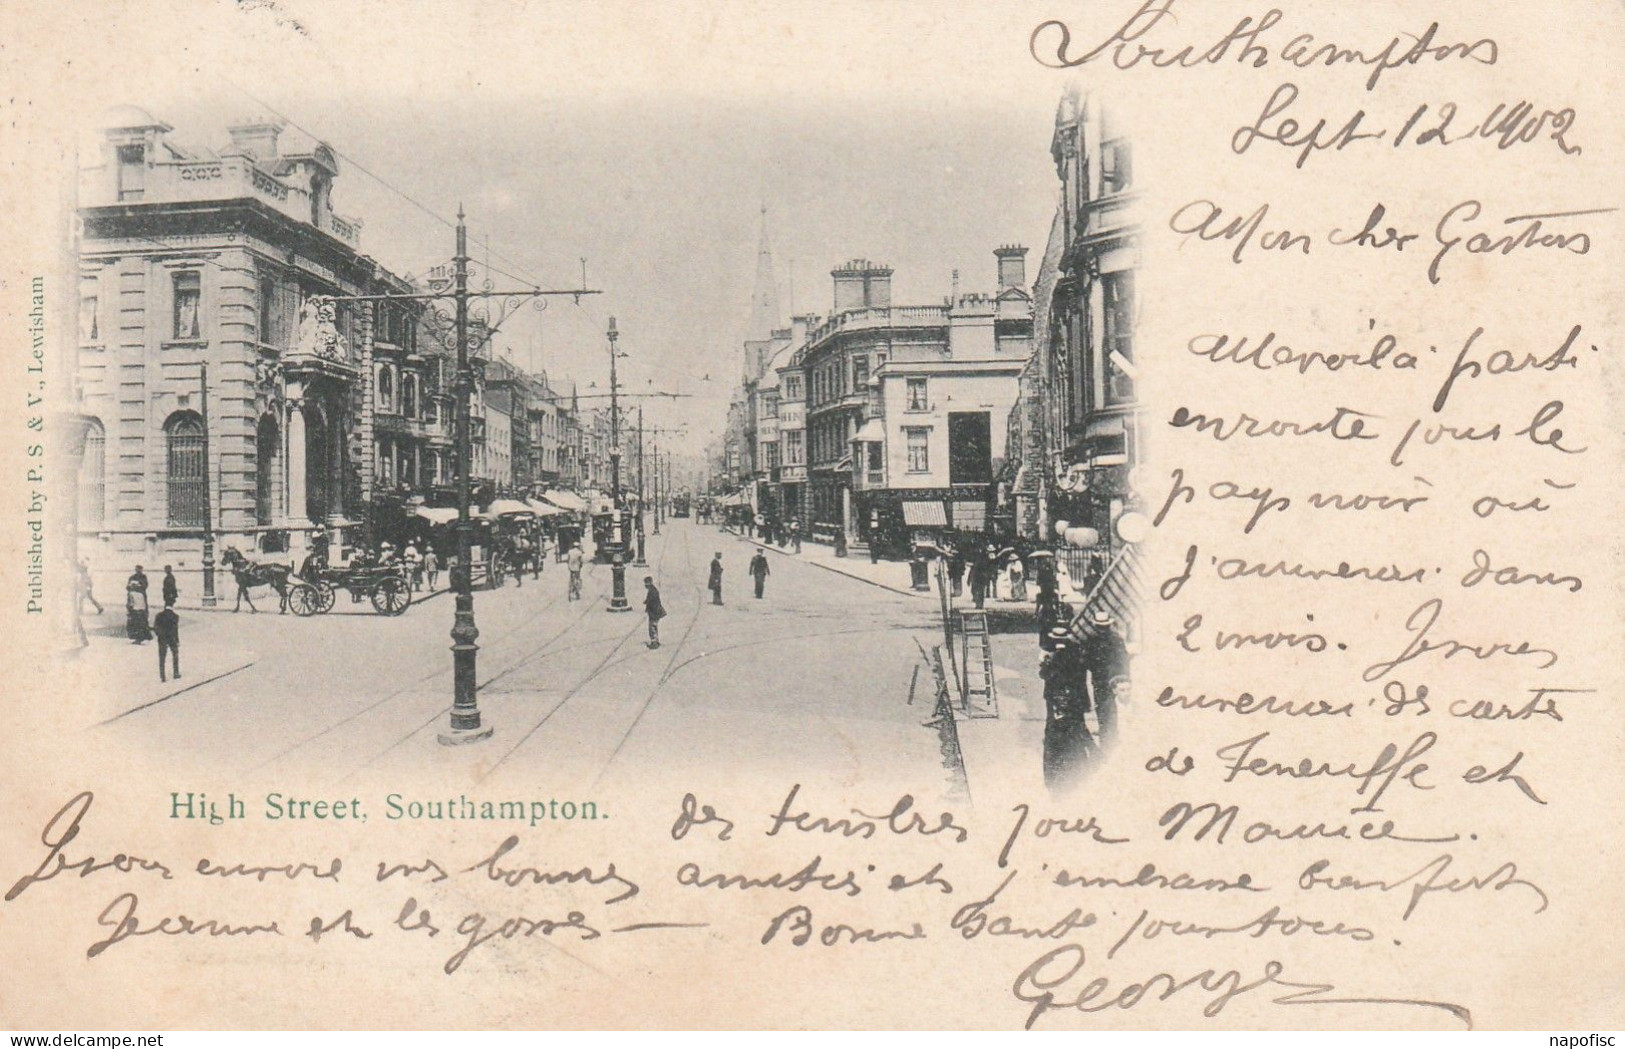 Southampton
Sept 12 1902
Mon cher Gaston
Me voilà parti
en route pour le
pays noir où
j'arriverai dans
2 mois. Je vous
enverrai des cartes
de Teneriffe et
des timbres pour Maurice.
Je vous envoie mes bonnes amitiés et j'embrasse bien fort
Jeanne et les gosses — Bonne Santé pour tous.
George
High Street, Southampton.
Published by P. S & V., Lewisham
delcampe.net
napofisc